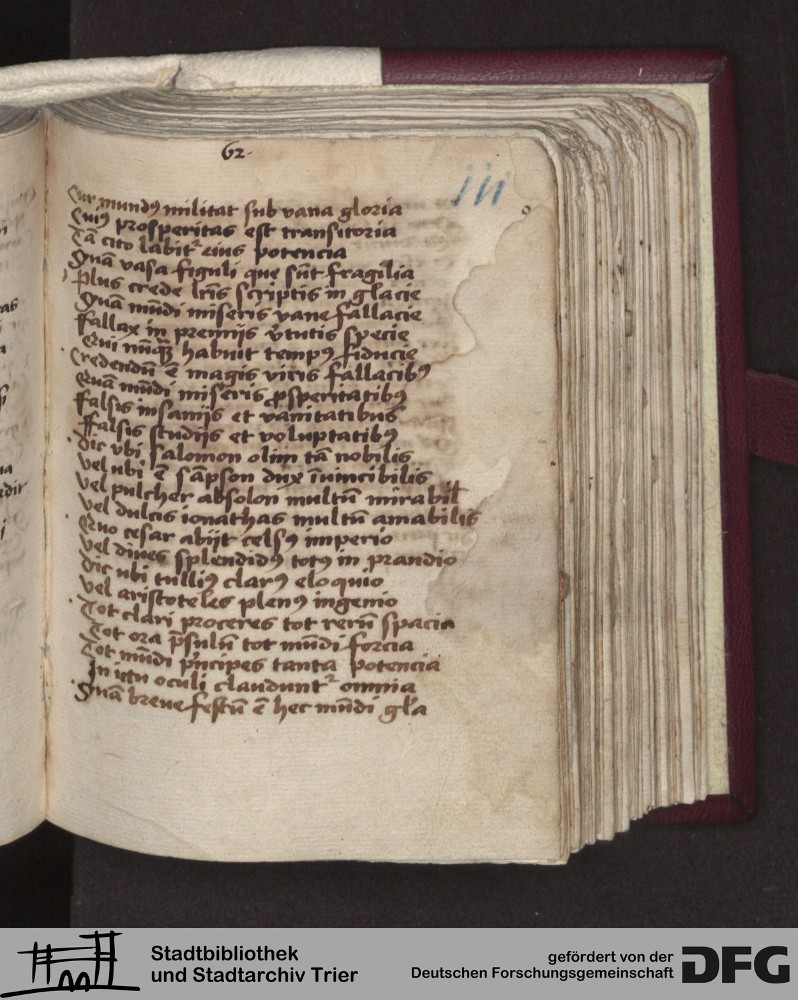 62.
iii
Cur mundꝰ militat sub vana gloria
Cuiꝰ prosperitas est transitoria
Tā cito labitᷣ eius potencia
Quā vasa figuli que sūt fragilia
Plus crede lr̄is scriptis in glacie
Quā mūdi miseris vane fallacie
Fallax in premijs v̄tutis specie
Qui nūqꝫ habuit tempꝰ fiducie
Credendū ē magis viris fallacibꝰ
Quā mūdi miseris ꝓsperitatibꝰ
Falsis insanijs et vanitatibus
Falsis studijs et voluptatibꝰ
Dic vbi salomon olim tā nobilis
Vel ubi ē sāpson dux īuincibilis
Vel pulcher absolon multū mirabil̄
Vel dulcis ionathas multū amabilis
Quo cesar abijt celsꝰ imperio
Vel diues splendidꝰ totꝰ in prandio
Dic ubi tulliꝰ clarꝰ eloquio
Vel aristoteles plenꝰ ingenio
Tot clari proceres tot rerū spacia
Tot ora p̄sulū tot mūdi forcia
Tot mūdi pͥncipes tanta potencia
In ictu oculi claudunt᷑ omnia
Quā breue festū ē hec mūdi gl̄a
Stadtbibliothek
und Stadtarchiv Trier
gefördert von der
Deutschen Forschungsgemeinschaft
DFG